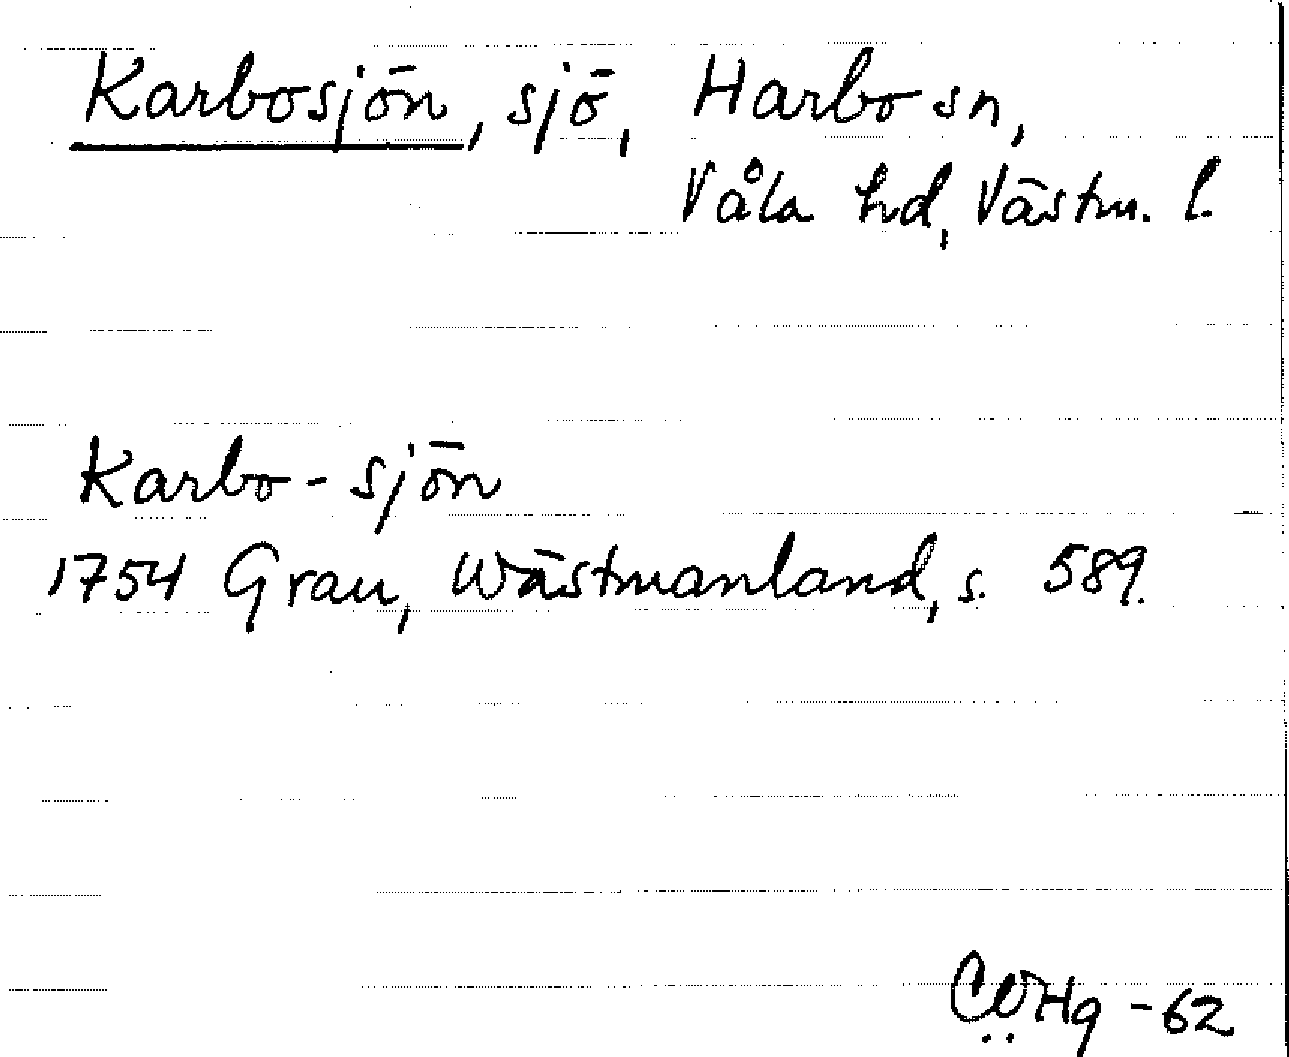 Karbosjön, sjö, Harbo sn,
Våla hd, Västm. l.
Karbo-sjön
1754 Grau, Wästmanland, s. 589.
-62